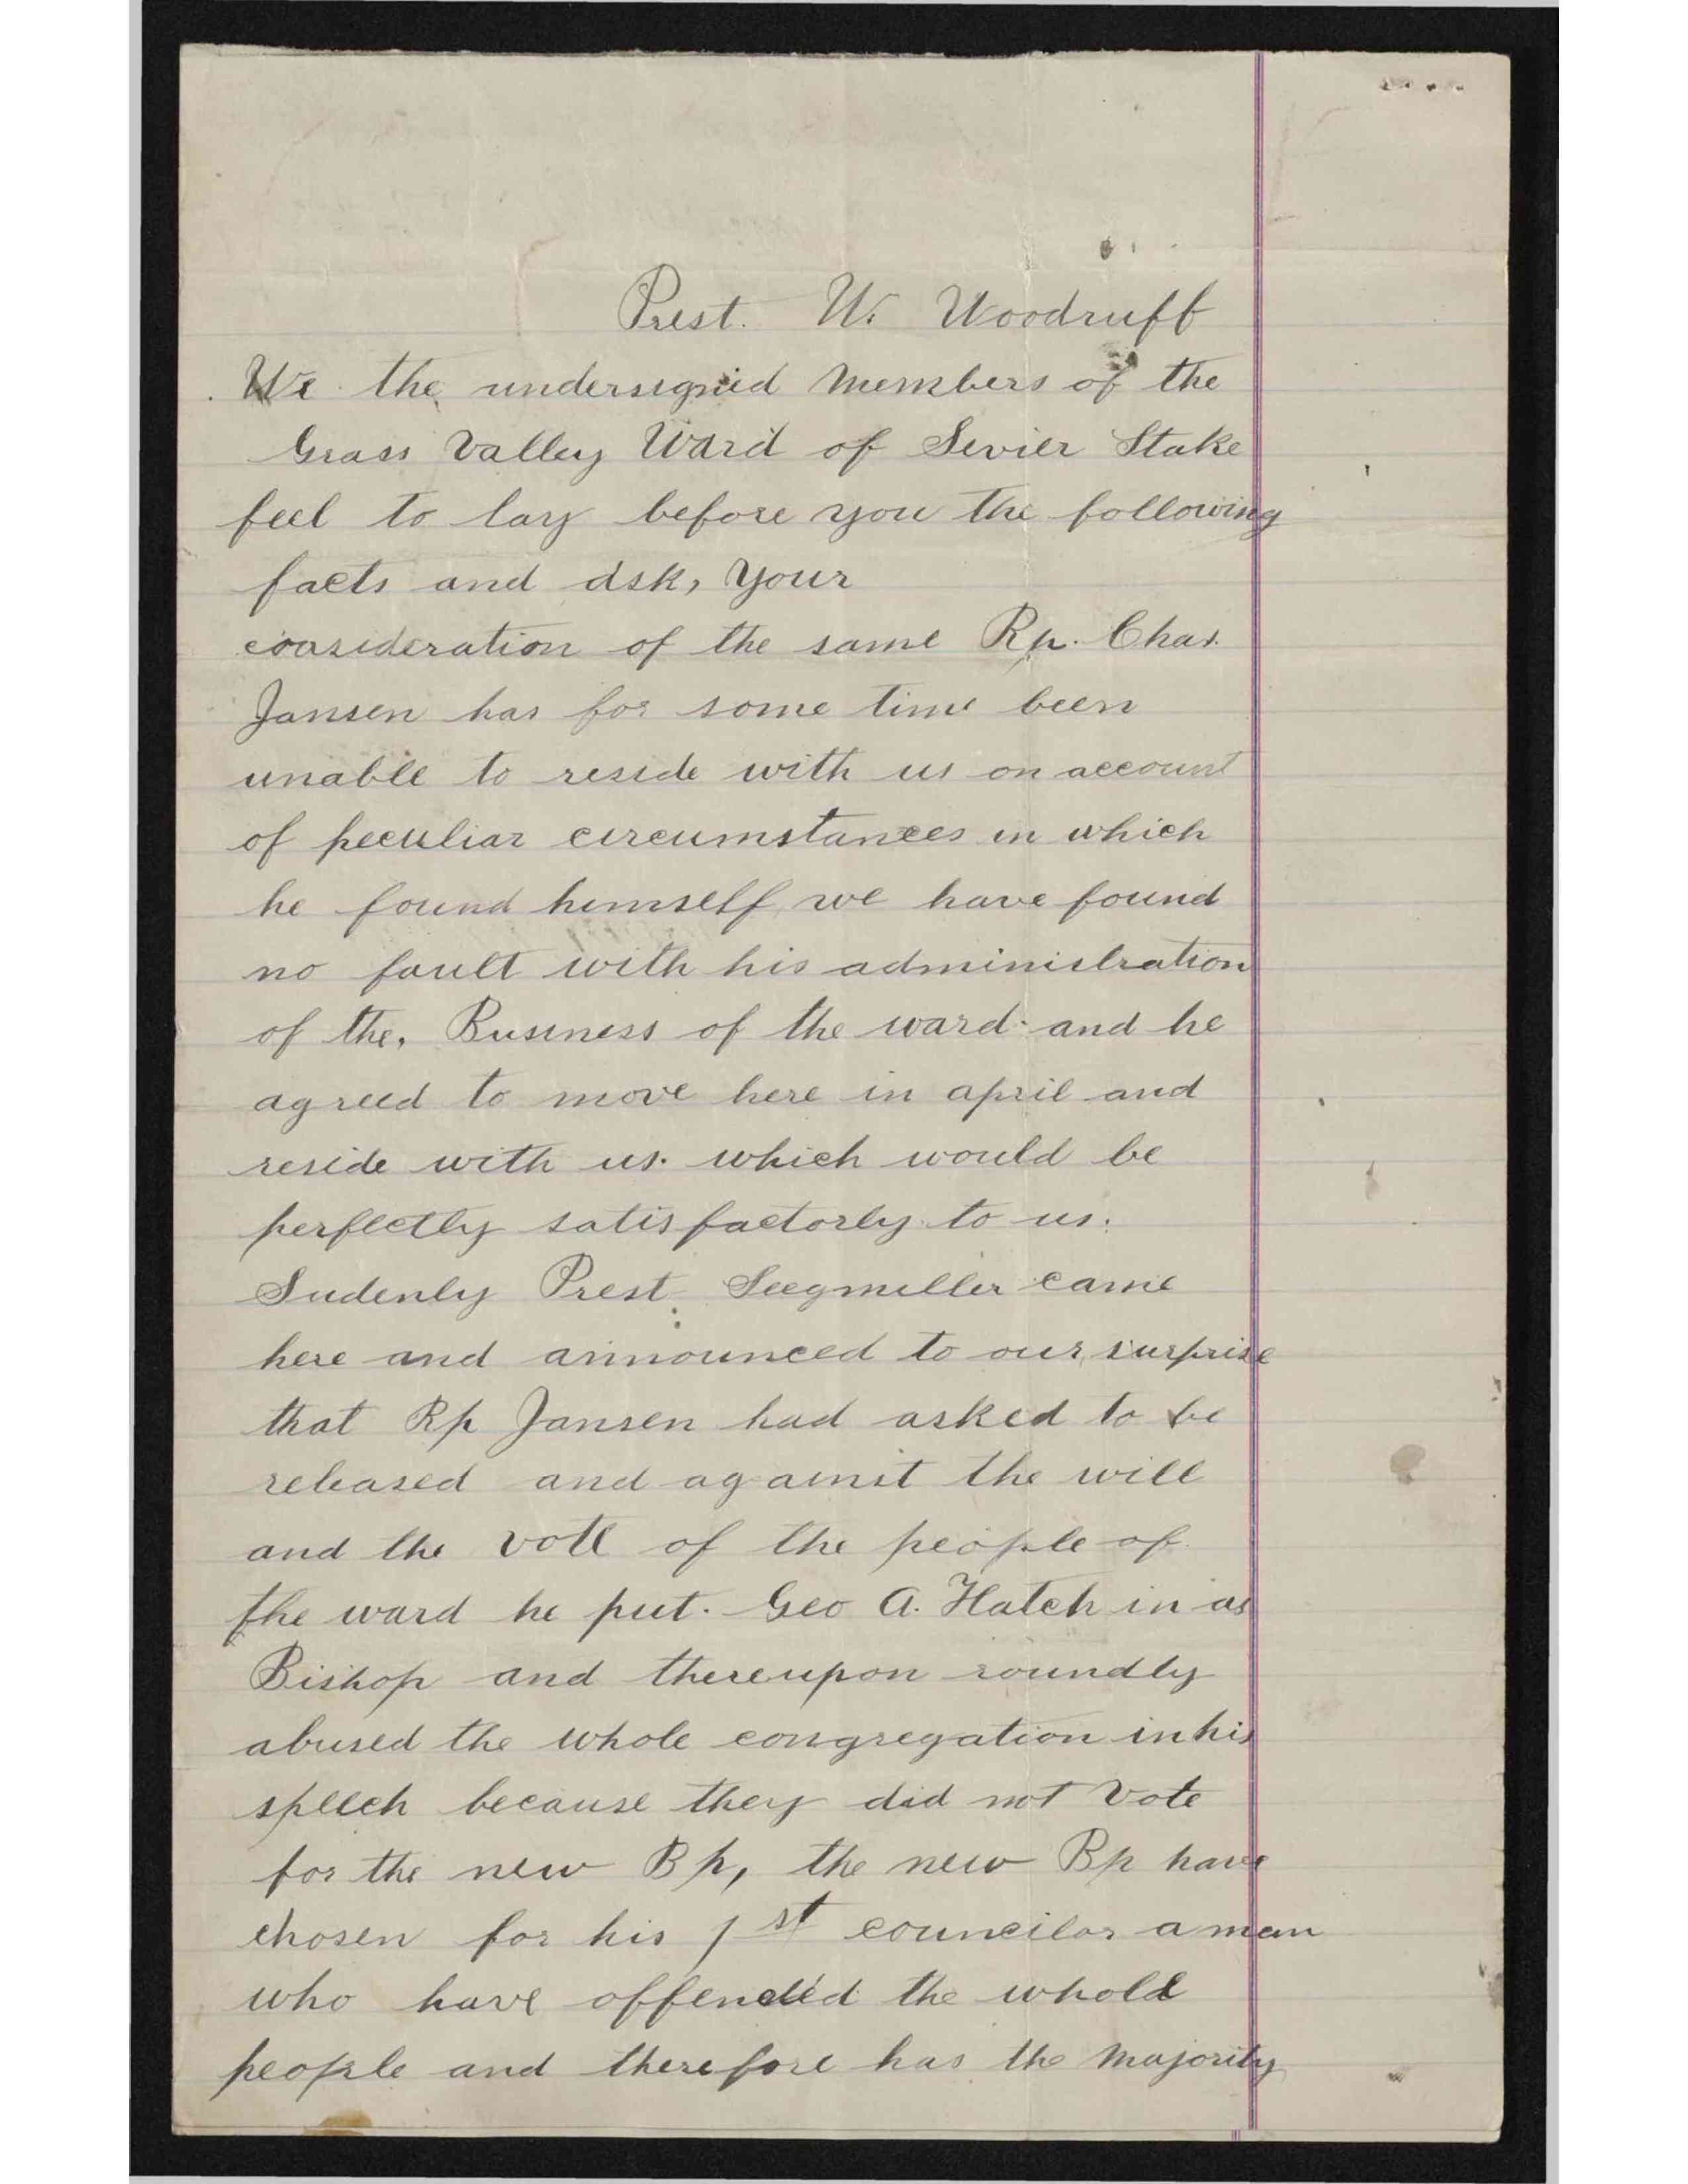 Prest. W. Woodruff
We the undersigned Members of the
Grass Valley Ward of Sevier Stake
feel to lay before you the following
facts and ask, your
consideration of the same Bp. Chas.
Jansen has for some time been
unable to reside with us on account
of peculiar circumstances in which
he found himself, we have found
no fault with his administration
of the, Business of the ward. and he
agreed to move here in april and
reside with us. which would be
perfectly satisfactorly to us.
Sudenly Prest. Seegmiller came
here and announced to our surprise
that Bp Jansen had asked to be
released and against the will
and the vote of the people of
the ward he put. Geo A. Hatch in as
Bishop and thereupon roundly
abused the whole congregation in his
speech because they did not vote
for the new Bp, the new Bp have
chosen for his 1st councilor a man
who have offended the whole
people and therefore has the Majority